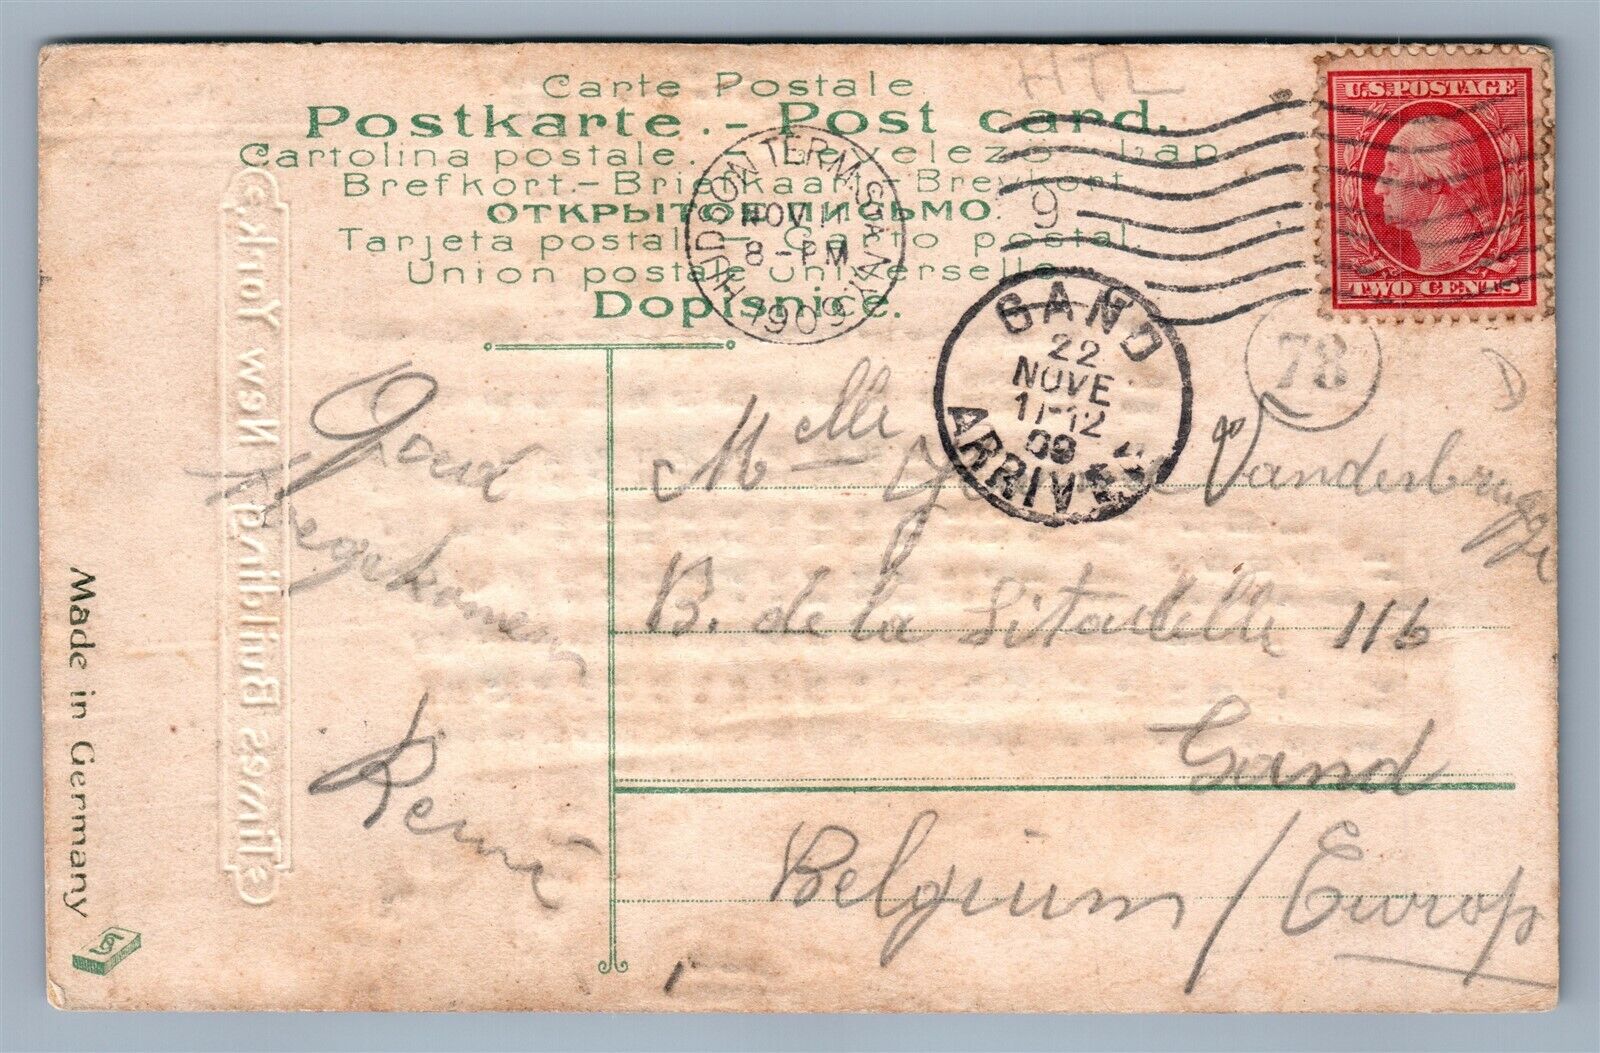 Carte Postale
HTL
Postkarte.- Post card.
Cartolina postale. Levelező-Lap
Brefkort.-Briefkaart.-Brevkort
ОТКРЫТОЕ ПИСЬМО.
Tarjeta postal.- Carto postal.
Union postale universelle.
Dopisnice.
HUDSON TERM. STA. N.Y.
NOV 11
8-PM
1909
9
U.S. POSTAGE
TWO CENTS
GAND
22
NOVE
11-12
09
ARRIVÉE
78
D
Goed
Aegekomen
René
Mlle Vanderbrugge
B. de la Sitadelle 116
Gand
Belgium / Europ
Times Building, New York
Made in Germany